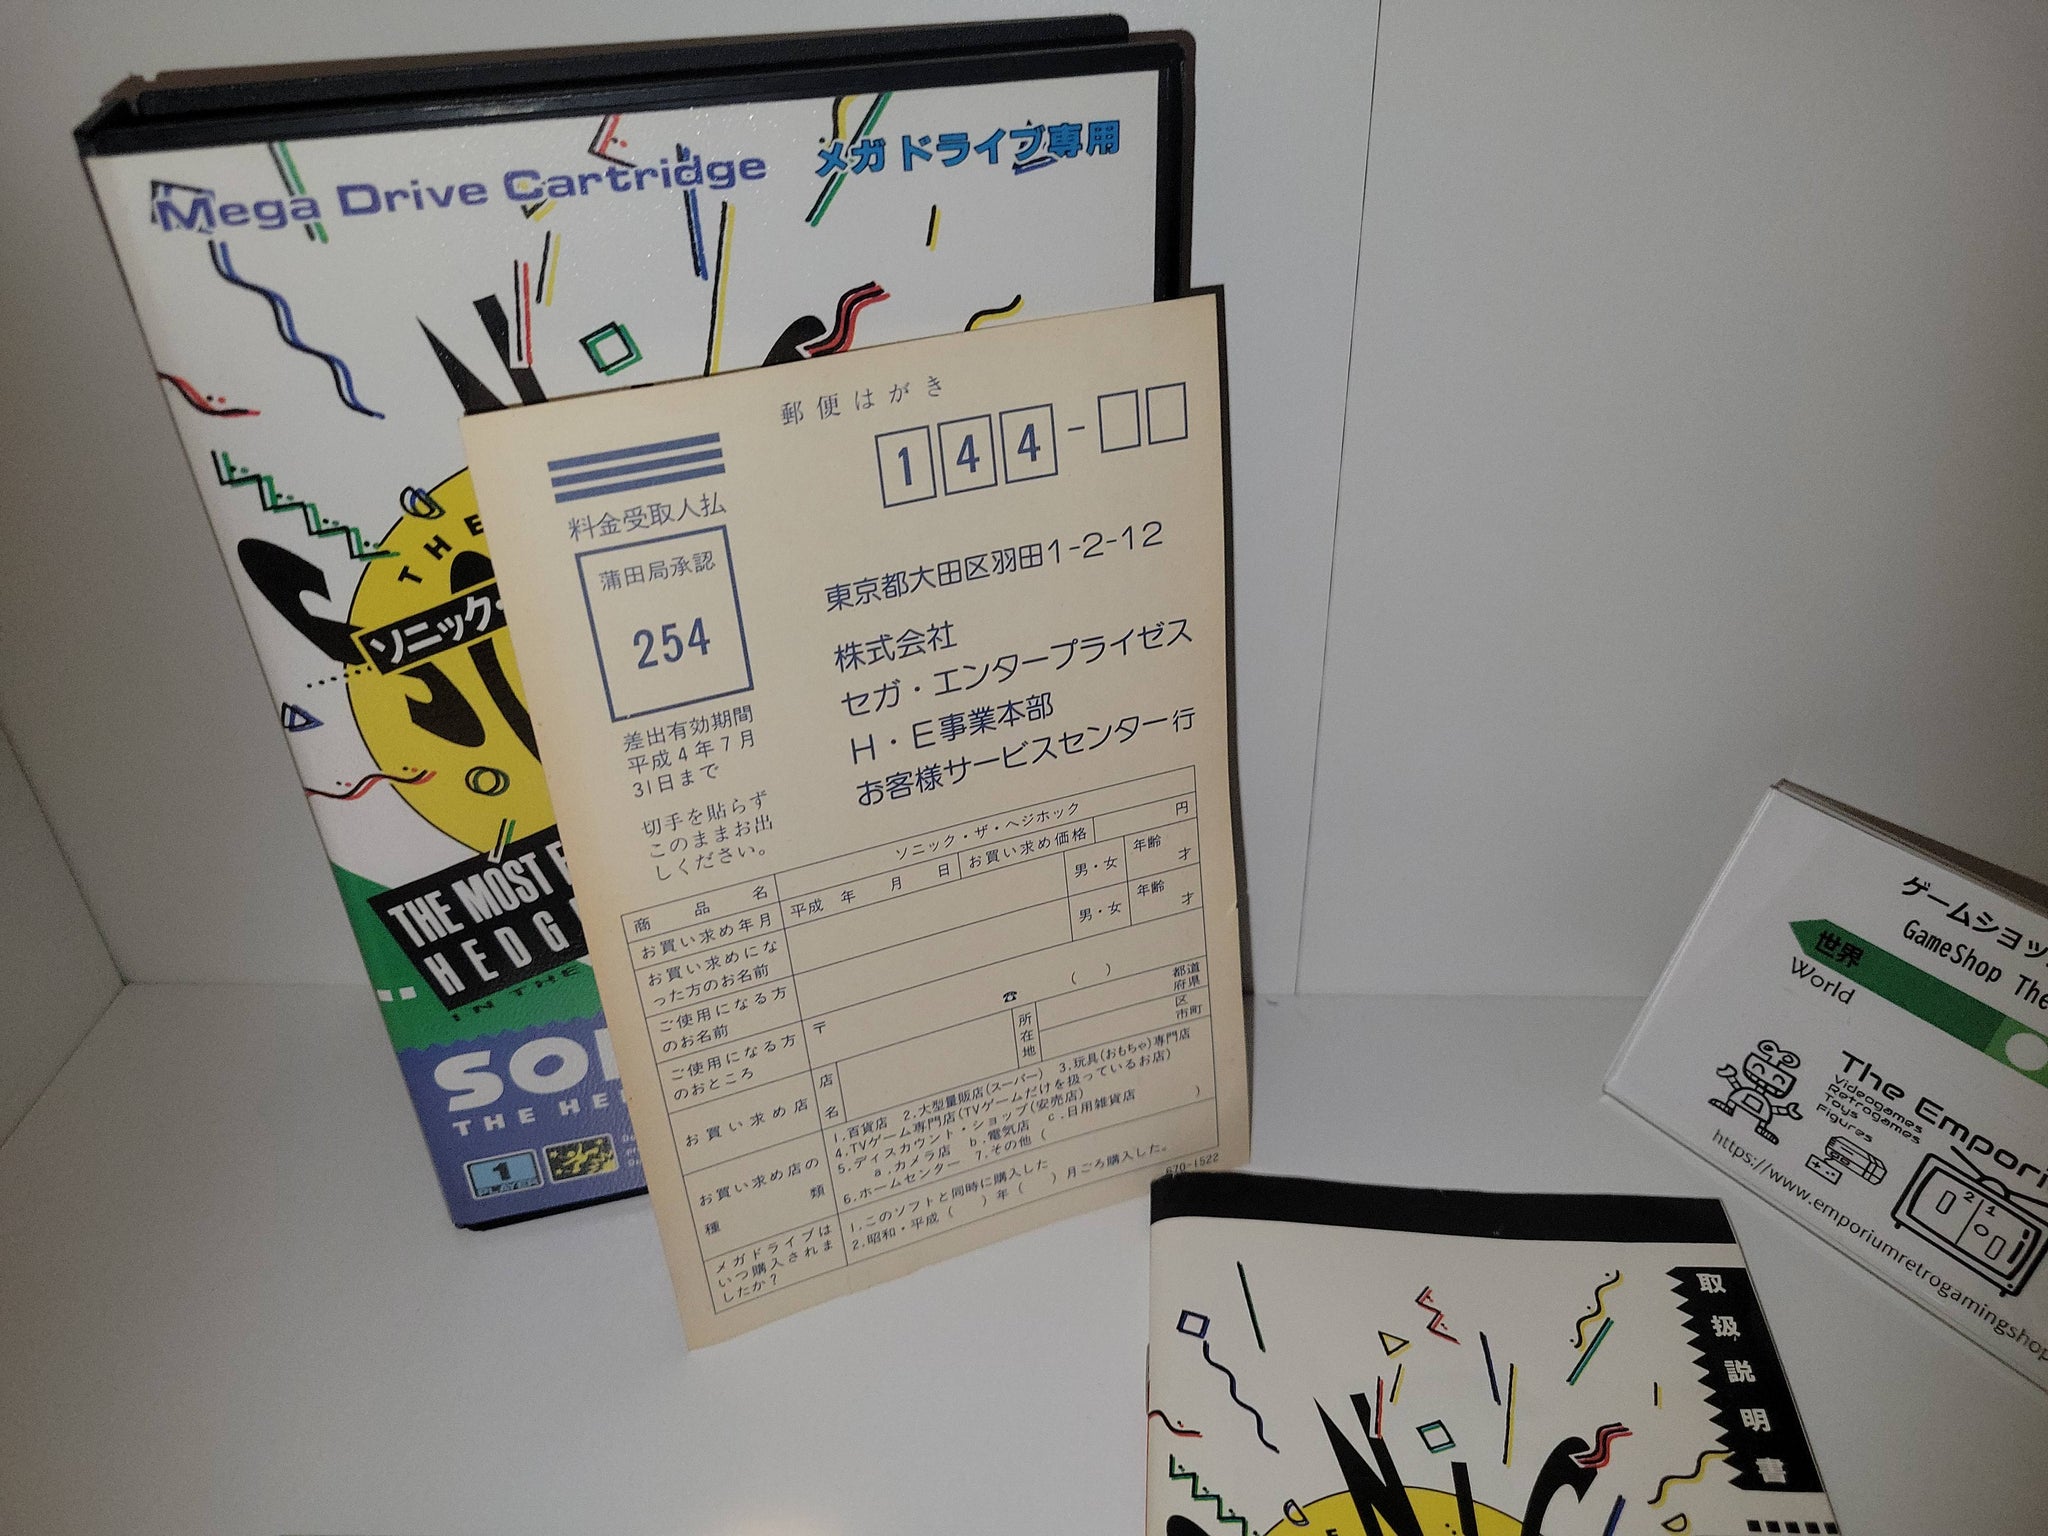 Mega Drive Cartridge
メガドライブ専用
THE
ソニック・
THE MOST
HEDG
IN THE
SO
THE HE
1
PLAYER
郵便はがき
144-
料金受取人払
蒲田局承認
254
差出有効期間
平成4年7月
31日まで
切手を貼らず
このままお出
しください。
東京都大田区羽田1-2-12
株式会社
セガ・エンタープライゼス
H・E事業本部
お客様サービスセンター行
商品名 ソニック・ザ・ヘジホック
お買い求め年月 平成 年 月 日 お買い求め価格 円
お買い求めにな
った方のお名前 男・女 年齢 才
ご使用になる方
のお名前 男・女 年齢 才
ご使用になる方
のおところ 〒 ☎ ( )
お買い求め店 店名 所在地 都道府県 区市町
お買い求め店の
種類
1.百貨店 2.大型量販店(スーパー) 3.玩具(おもちゃ)専門店
4.TVゲーム専門店(TVゲームだけを扱っているお店)
5.ディスカウント・ショップ(安売店)
a.カメラ店 b.電気店 c.日用雑貨店
6.ホームセンター 7.その他( )
メガドライブは
いつ購入されま
したか?
1.このソフトと同時に購入した
2.昭和・平成( )年( )月ごろ購入した。
670-1522
取扱説明書
ゲームショッ
GameShop The
世界
World
The Empori
Videogames
Retrogames
Toys
Figures
https://www.emporiumretrogamingshop
2
1